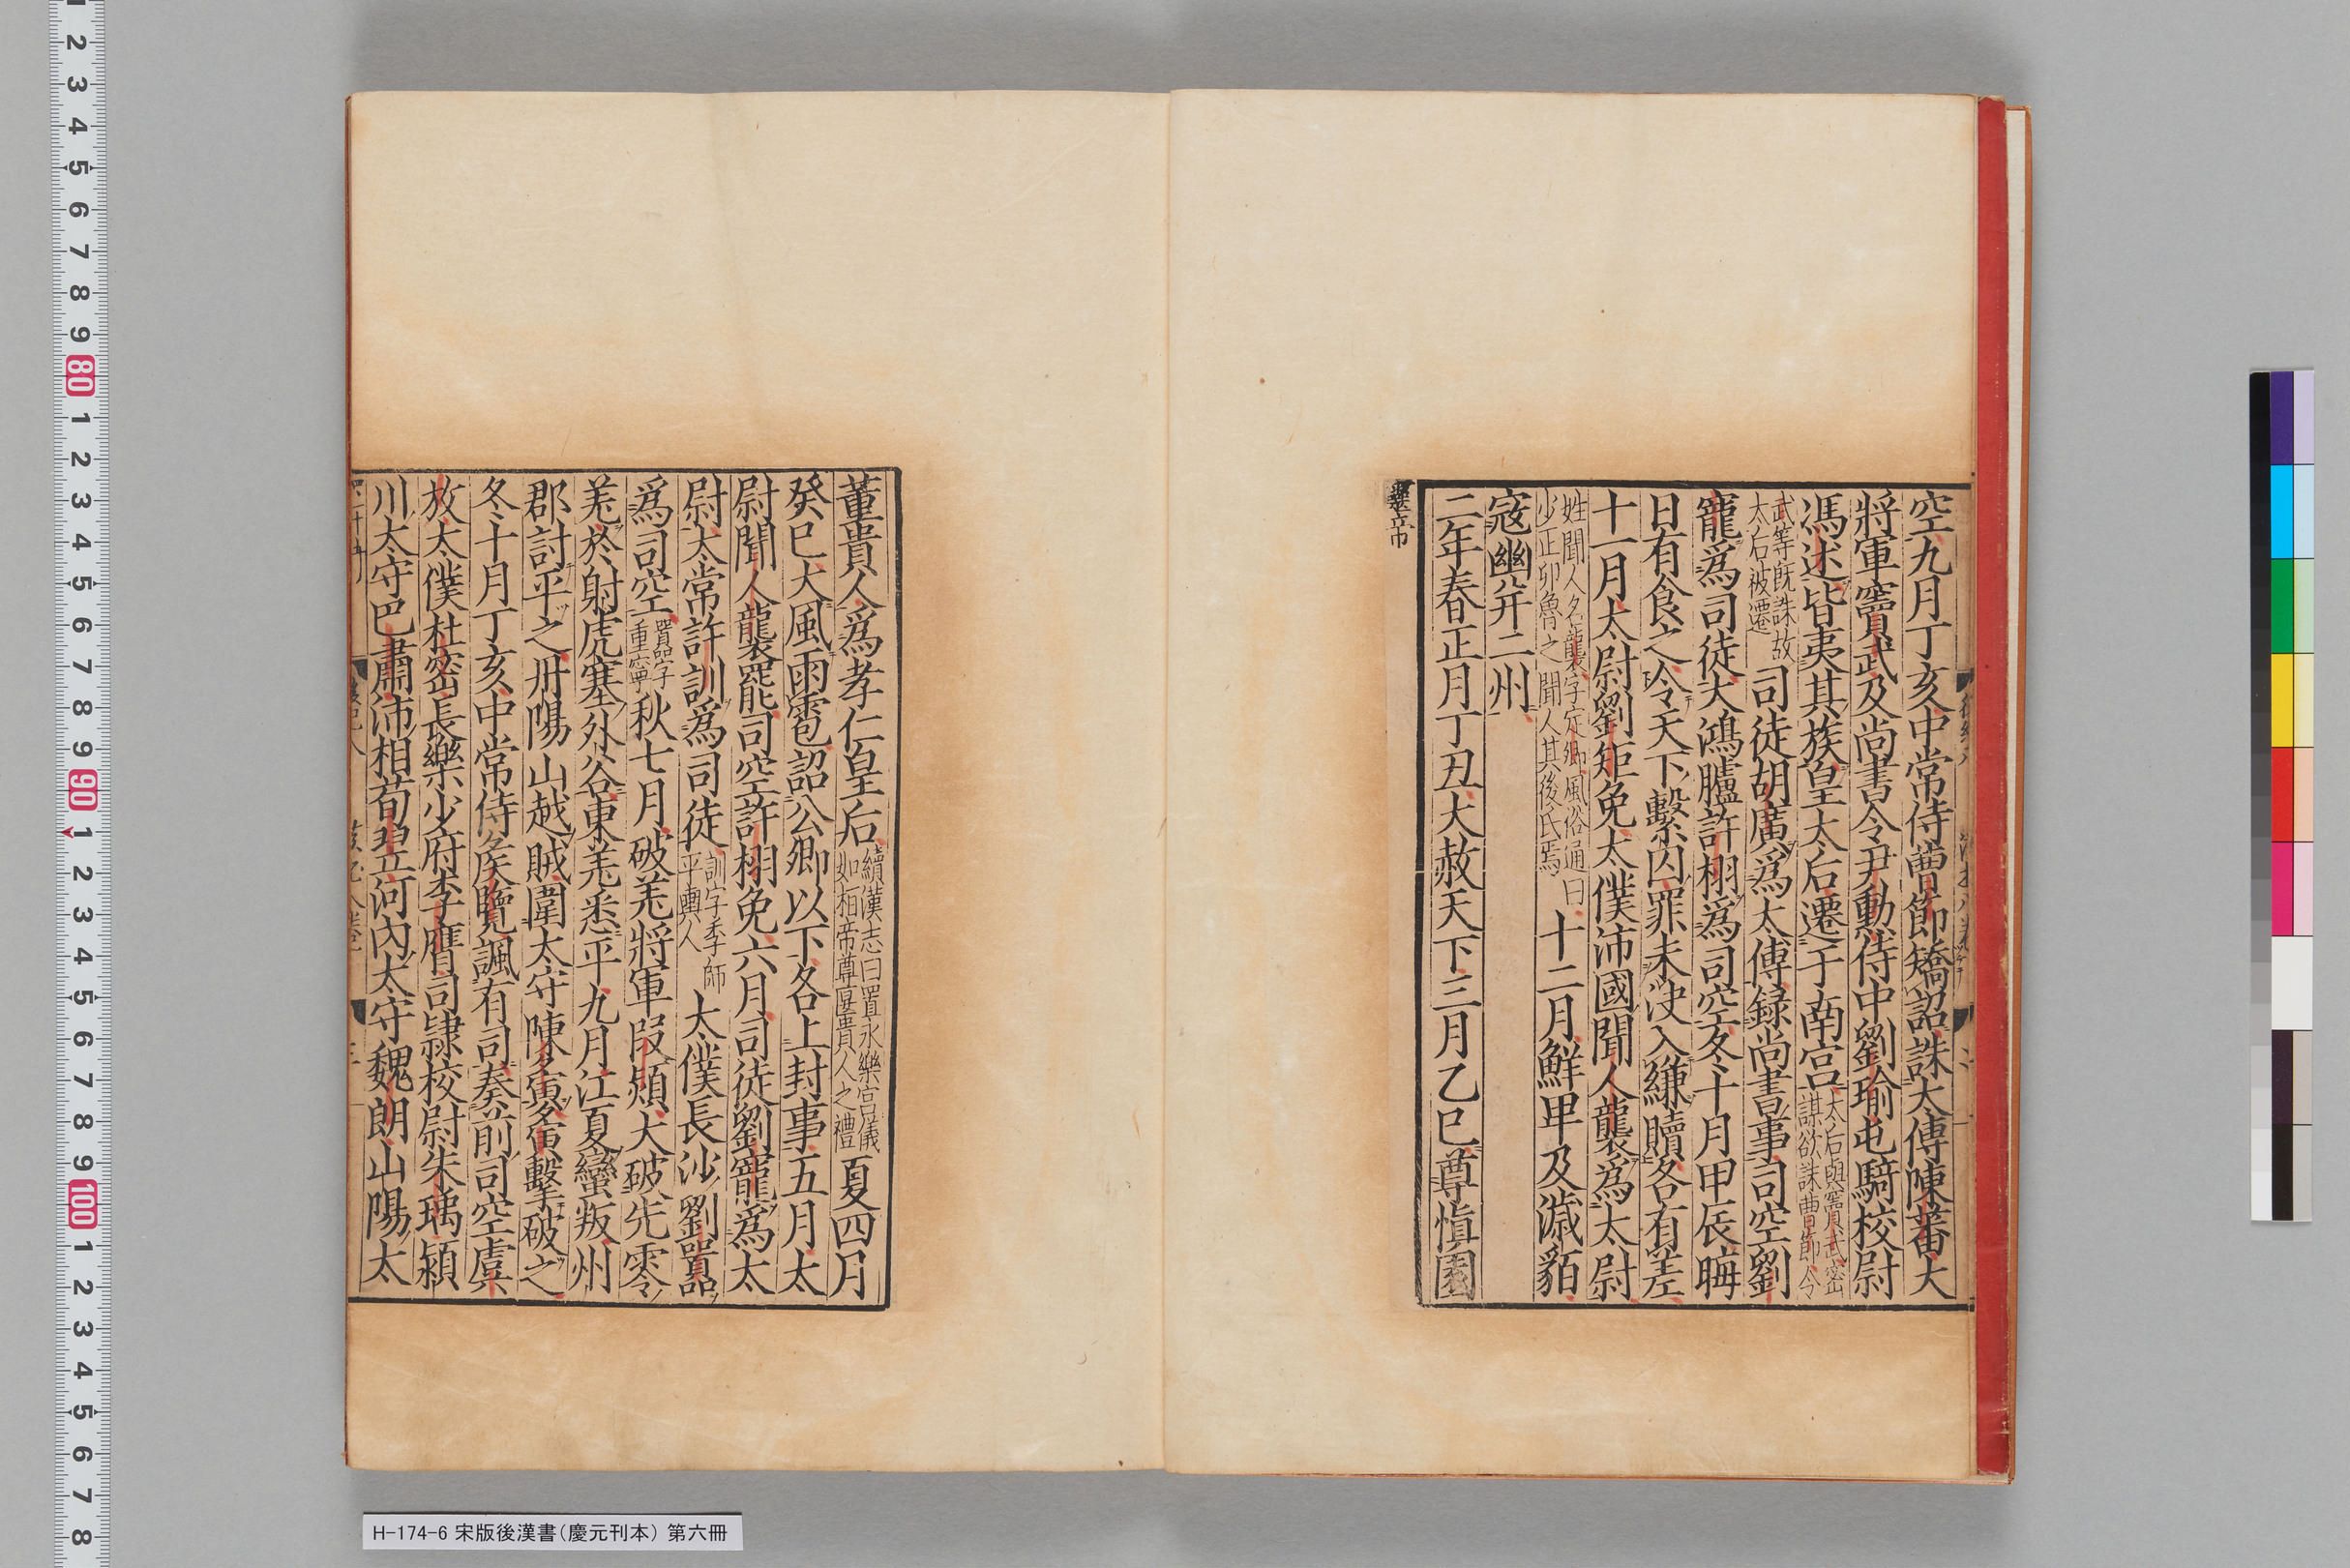 空九月丁亥中常侍曹節矯詔誅太傅陳蕃大
將軍竇武及尚書令尹勳侍中劉瑜屯騎校尉
馮述皆夷其族皇太后遷于南宮太后與竇武密謀欲誅曹節今
武等既誅故太后被遷司徒胡廣爲太傅録尚書事司空劉
寵爲司徒大鴻臚許栩爲司空冬十月甲辰晦
日有食之令天下繫囚罪未決入縑贖各有差
十一月太尉劉矩免太僕沛國聞人襲爲太尉
姓聞人名襲字定卿風俗通曰少正卯魯之聞人其後氏焉十二月鮮卑及濊貊
寇幽并二州
二年春正月丁丑大赦天下三月乙巳尊愼園
董貴人爲孝仁皇后續漢志曰置永樂宮儀如桓帝尊匽貴人之禮夏四月
癸巳大風雨雹詔公卿以下各上封事五月太
尉聞人襲罷司空許栩免六月司徒劉寵爲太
尉太常許訓爲司徒訓字季師平輿人太僕長沙劉囂
爲司空囂字重寧秋七月破羌將軍段熲大破先零
羌於射虎塞外谷東羌悉平九月江夏蠻叛州
郡討平之丹陽山越賊圍太守陳夤夤擊破之
冬十月丁亥中常侍侯覽諷有司奏前司空虞
放太僕杜密長樂少府李膺司隷校尉朱㻪潁
川太守巴肅沛相荀翌河內太守魏朗山陽太
H-174-6 宋版後漢書（慶元刊本） 第六冊
2 3 4 5 6 7 8 9 80 1 2 3 4 5 6 7 8 9 90 1 2 3 4 5 6 7 8 9 100 1 2 3 4 5 6 7 8